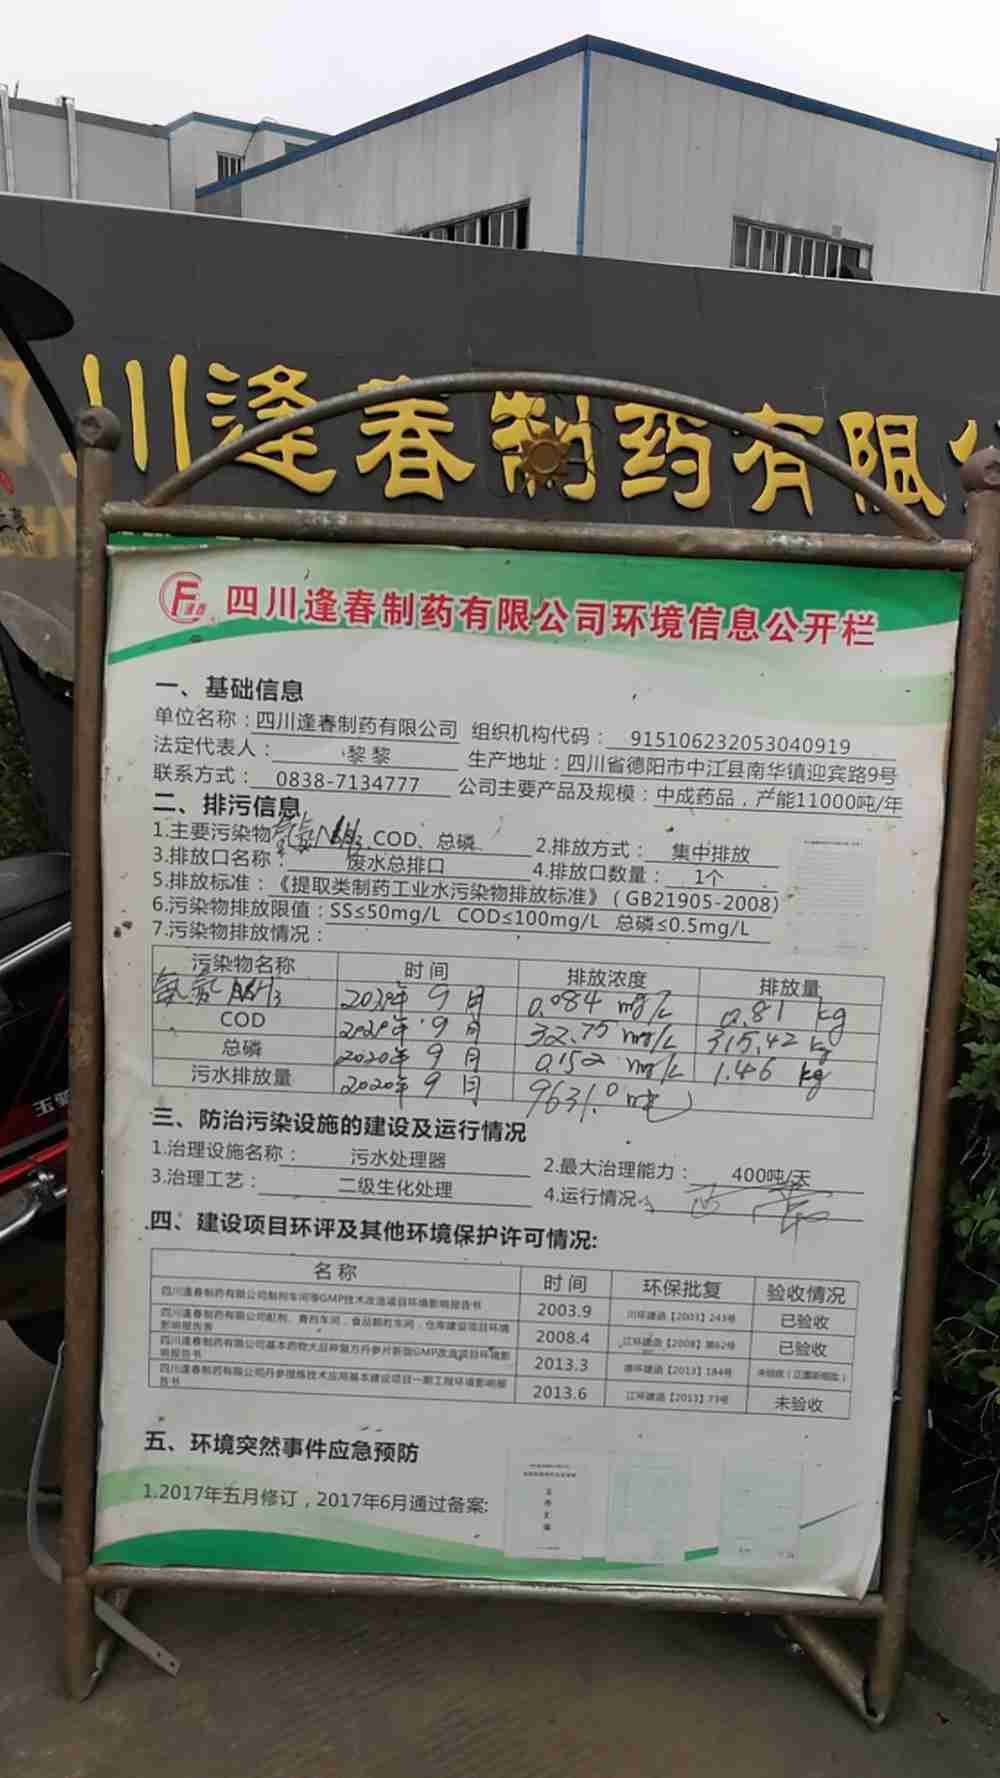 川逢春制药有限
逢春
四川逢春制药有限公司环境信息公开栏
一、基础信息
单位名称：四川逢春制药有限公司 组织机构代码： 915106232053040919
法定代表人： 黎黎 生产地址：四川省德阳市中江县南华镇迎宾路9号
联系方式： 0838-7134777 公司主要产品及规模：中成药品，产能11000吨/年
二、排污信息
1.主要污染物 氨氮NH3、COD、总磷 2.排放方式： 集中排放
3.排放口名称： 废水总排口 4.排放口数量： 1个
5.排放标准：《提取类制药工业水污染物排放标准》（GB21905-2008）
6.污染物排放限值：SS≤50mg/L COD≤100mg/L 总磷≤0.5mg/L
7.污染物排放情况：
污染物名称 时间 排放浓度 排放量
氨氮NH3 2020年9月 0.084 mg/L 0.81 kg
COD 2020年9月 32.75 mg/L 315.42 kg
总磷 2020年9月 0.152 mg/L 1.46 kg
污水排放量 2020年9月 9631.0吨
三、防治污染设施的建设及运行情况
1.治理设施名称： 污水处理器 2.最大治理能力： 400吨/天
3.治理工艺： 二级生化处理 4.运行情况：
四、建设项目环评及其他环境保护许可情况:
名称 时间 环保批复 验收情况
四川逢春制药有限公司制剂车间等GMP技术改造项目环境影响报告书 2003.9 川环建函【2003】243号 已验收
四川逢春制药有限公司酊剂、膏药车间，食品颗粒车间，仓库建设项目环境影响报告表 2008.4 江环建函【2008】第62号 已验收
四川逢春制药有限公司基本药物大品种复方丹参片新版GMP改造项目环境影响报告书 2013.3 德环建函【2013】184号 未验收（正重新报批）
四川逢春制药有限公司丹参提炼技术应用基本建设项目一期工程环境影响报告书 2013.6 江环建函【2013】73号 未验收
五、环境突然事件应急预防
1.2017年五月修订，2017年6月通过备案: